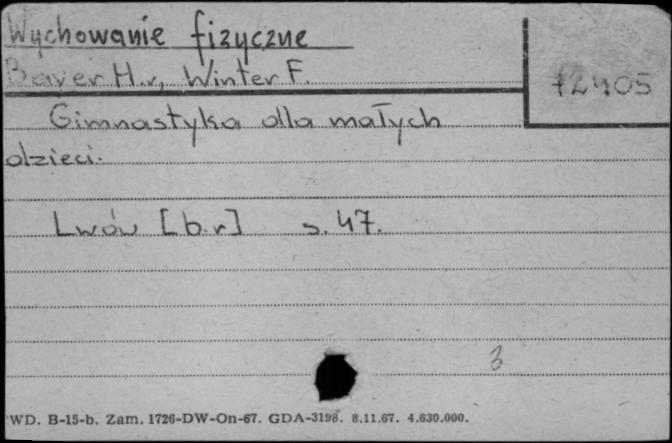 Wychowanie fizyczne
Bayer H. v, Winter F.
72405
Gimnastyka dla małych
dzieci.
Lwów [b.r] s. 47.
3
WD. B-15-b. Zam. 1726-DW-On-67. GDA-3198. 8.11.67. 4.630.000.